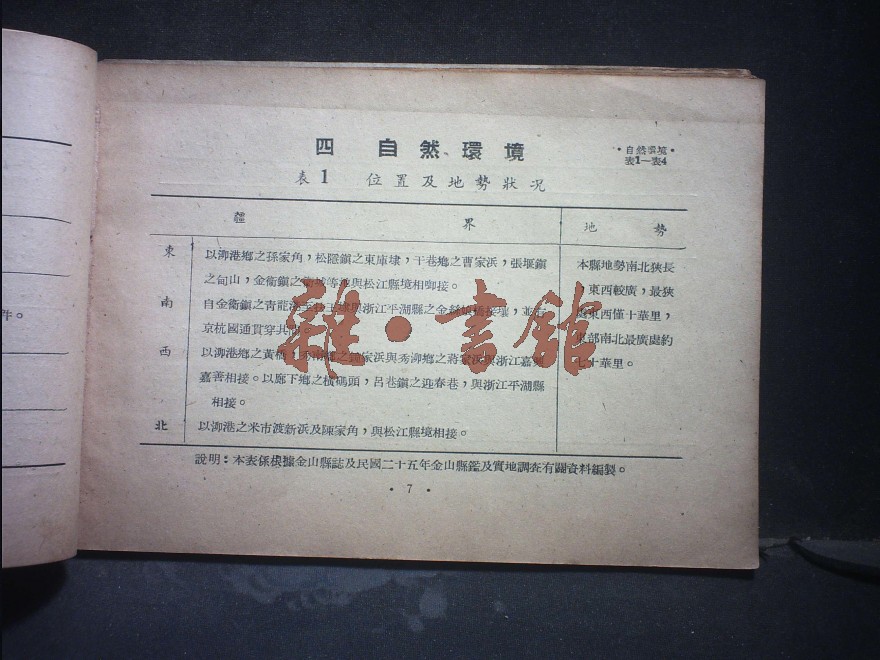 四 自然環境
·自然環境·
表1—表4
表1 位置及地勢狀况
疆 界 地 勢
東 以泖港鄉之孫家角，松隱鎮之東庫埭，干巷鄉之曹家浜，張堰鎮
之甸山，金衛鎮之衛城等地與松江縣境相啣接。
南 自金衛鎮之青龍港 與浙江平湖縣之金絲娘橋接壤，並有
京杭國道貫穿共
西 以泖港鄉之黃橋， 家浜與秀泖鄉之蔣家浜與浙江嘉
嘉善相接。以廊下鄉之橫碼頭，呂巷鎮之迎春巷，與浙江平湖縣
相接。
北 以泖港之米市渡新浜及陳家角，與松江縣境相接。
本縣地勢南北狹長
，東西較廣，最狹
處東西僅十華里，
東部南北最廣處約
七十華里。
說明：本表係根據金山縣誌及民國二十五年金山縣鑑及實地調查有關資料編製。
· 7 ·
件。
雜·書館